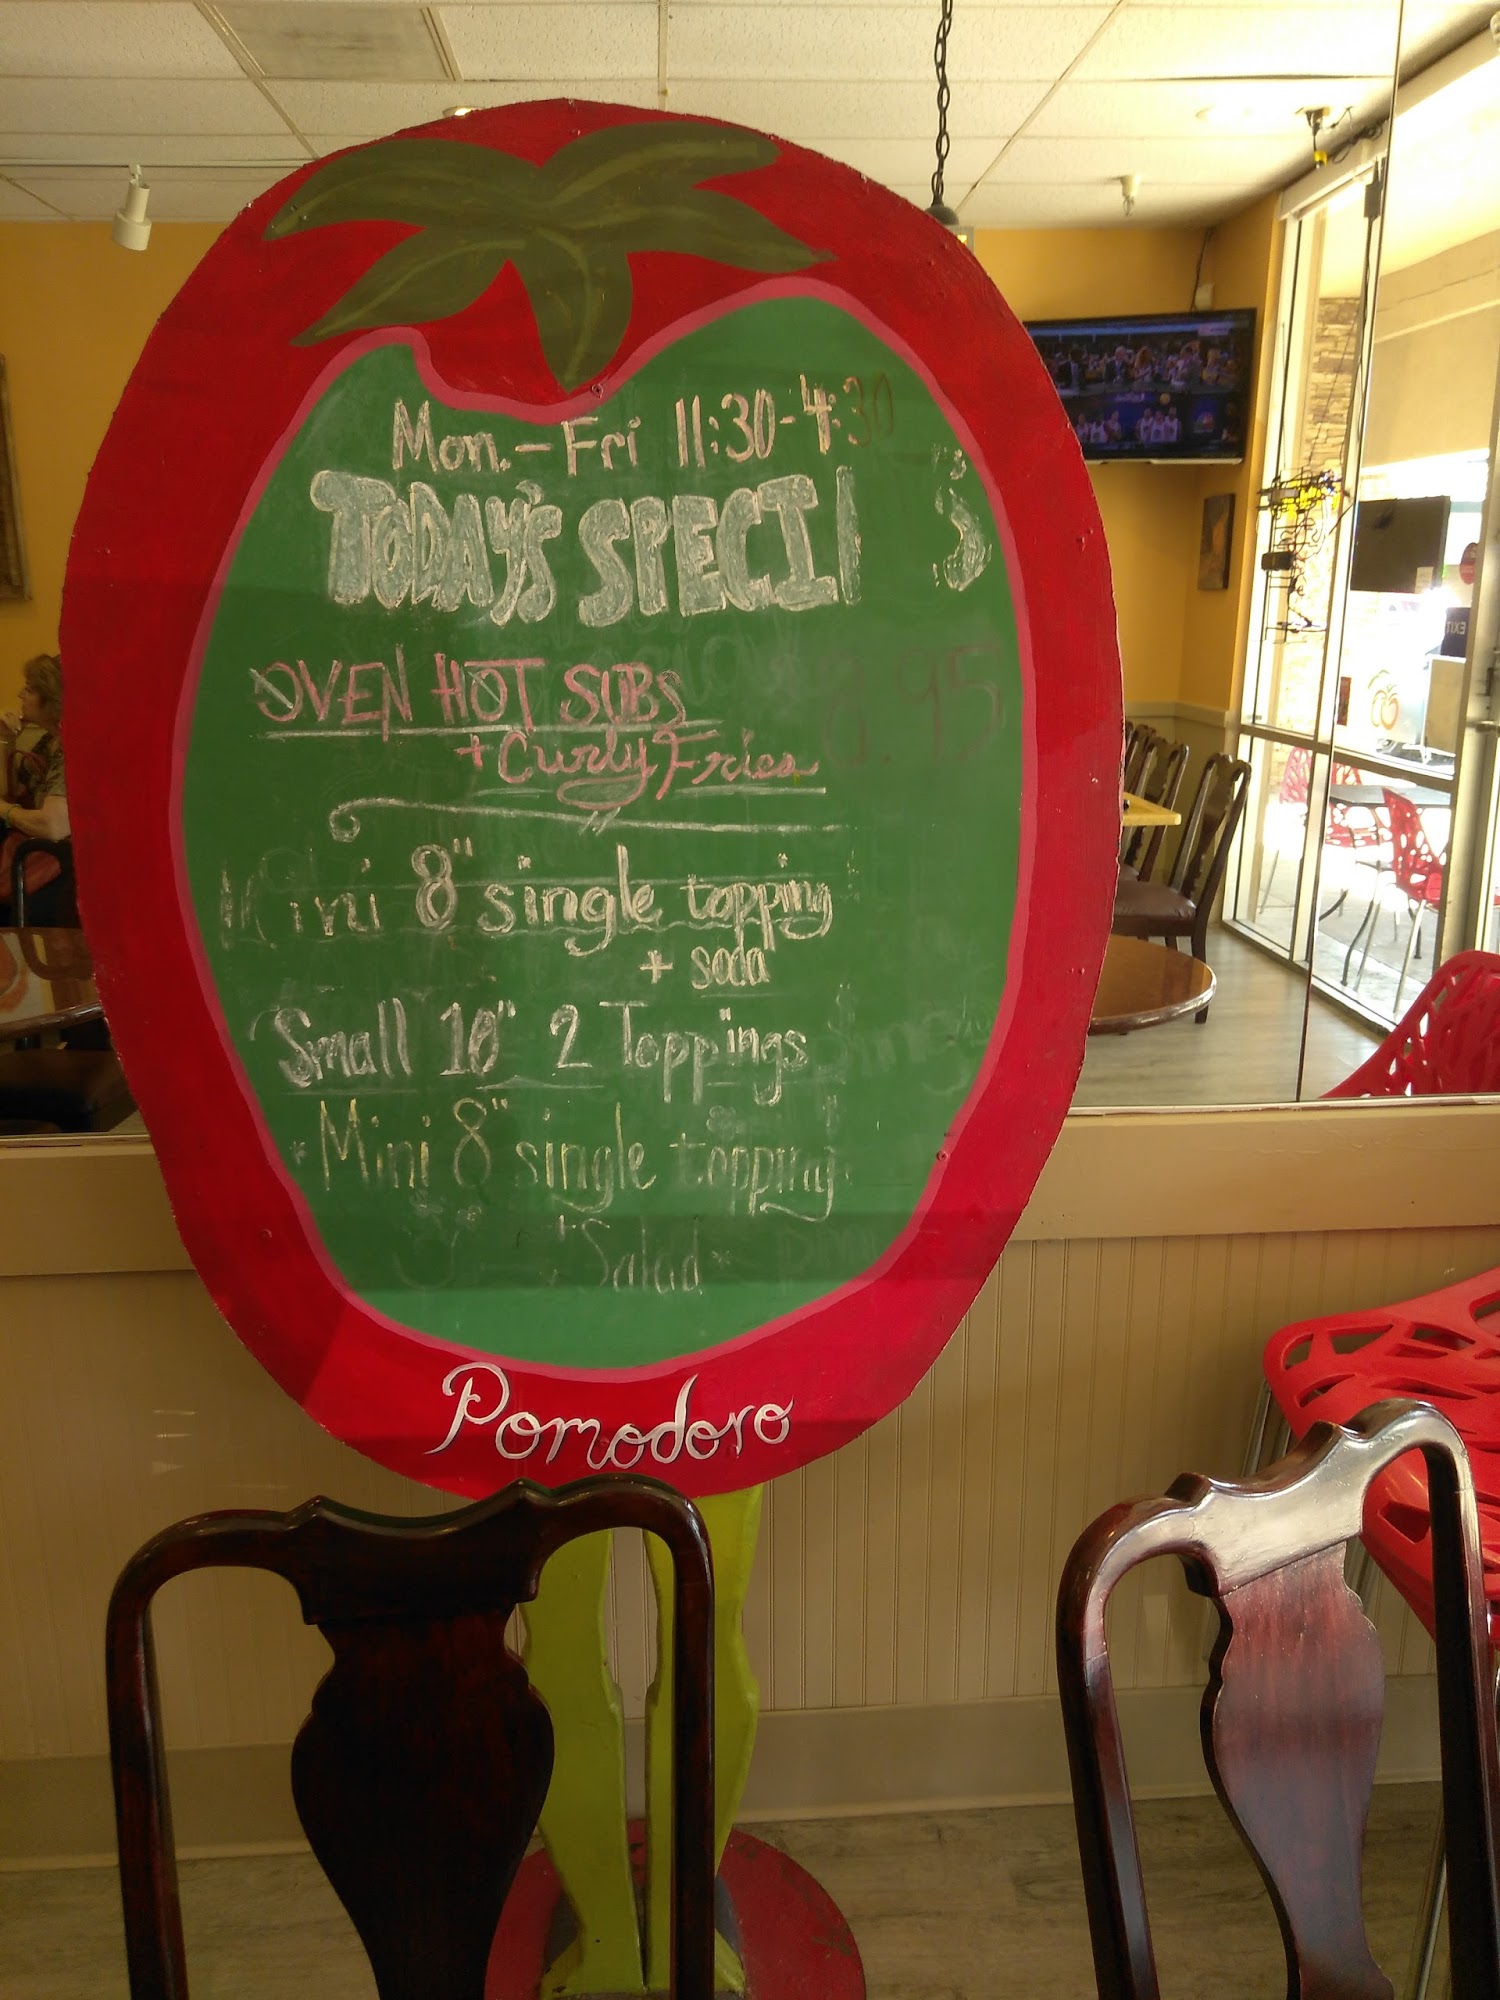 Mon. - Fri 11:30-4:30
TODAY'S SPECI S
OVEN HOT SUBS 8.95
+ Curly Fries
Mini 8" single topping
+ soda
Small 10" 2 Toppings
*Mini 8" single topping
+ Salad*
Pomodoro
EXIT